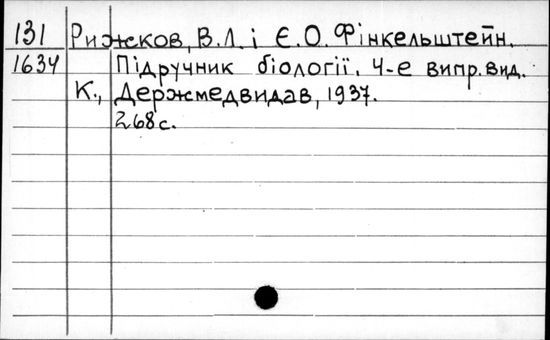 131 Рижков, В.Л. і Є.О. Фінкельштейн.
1634 Підручник біології. 4-е випр. вид.
К., Держмедвидав, 1937.
268 с.